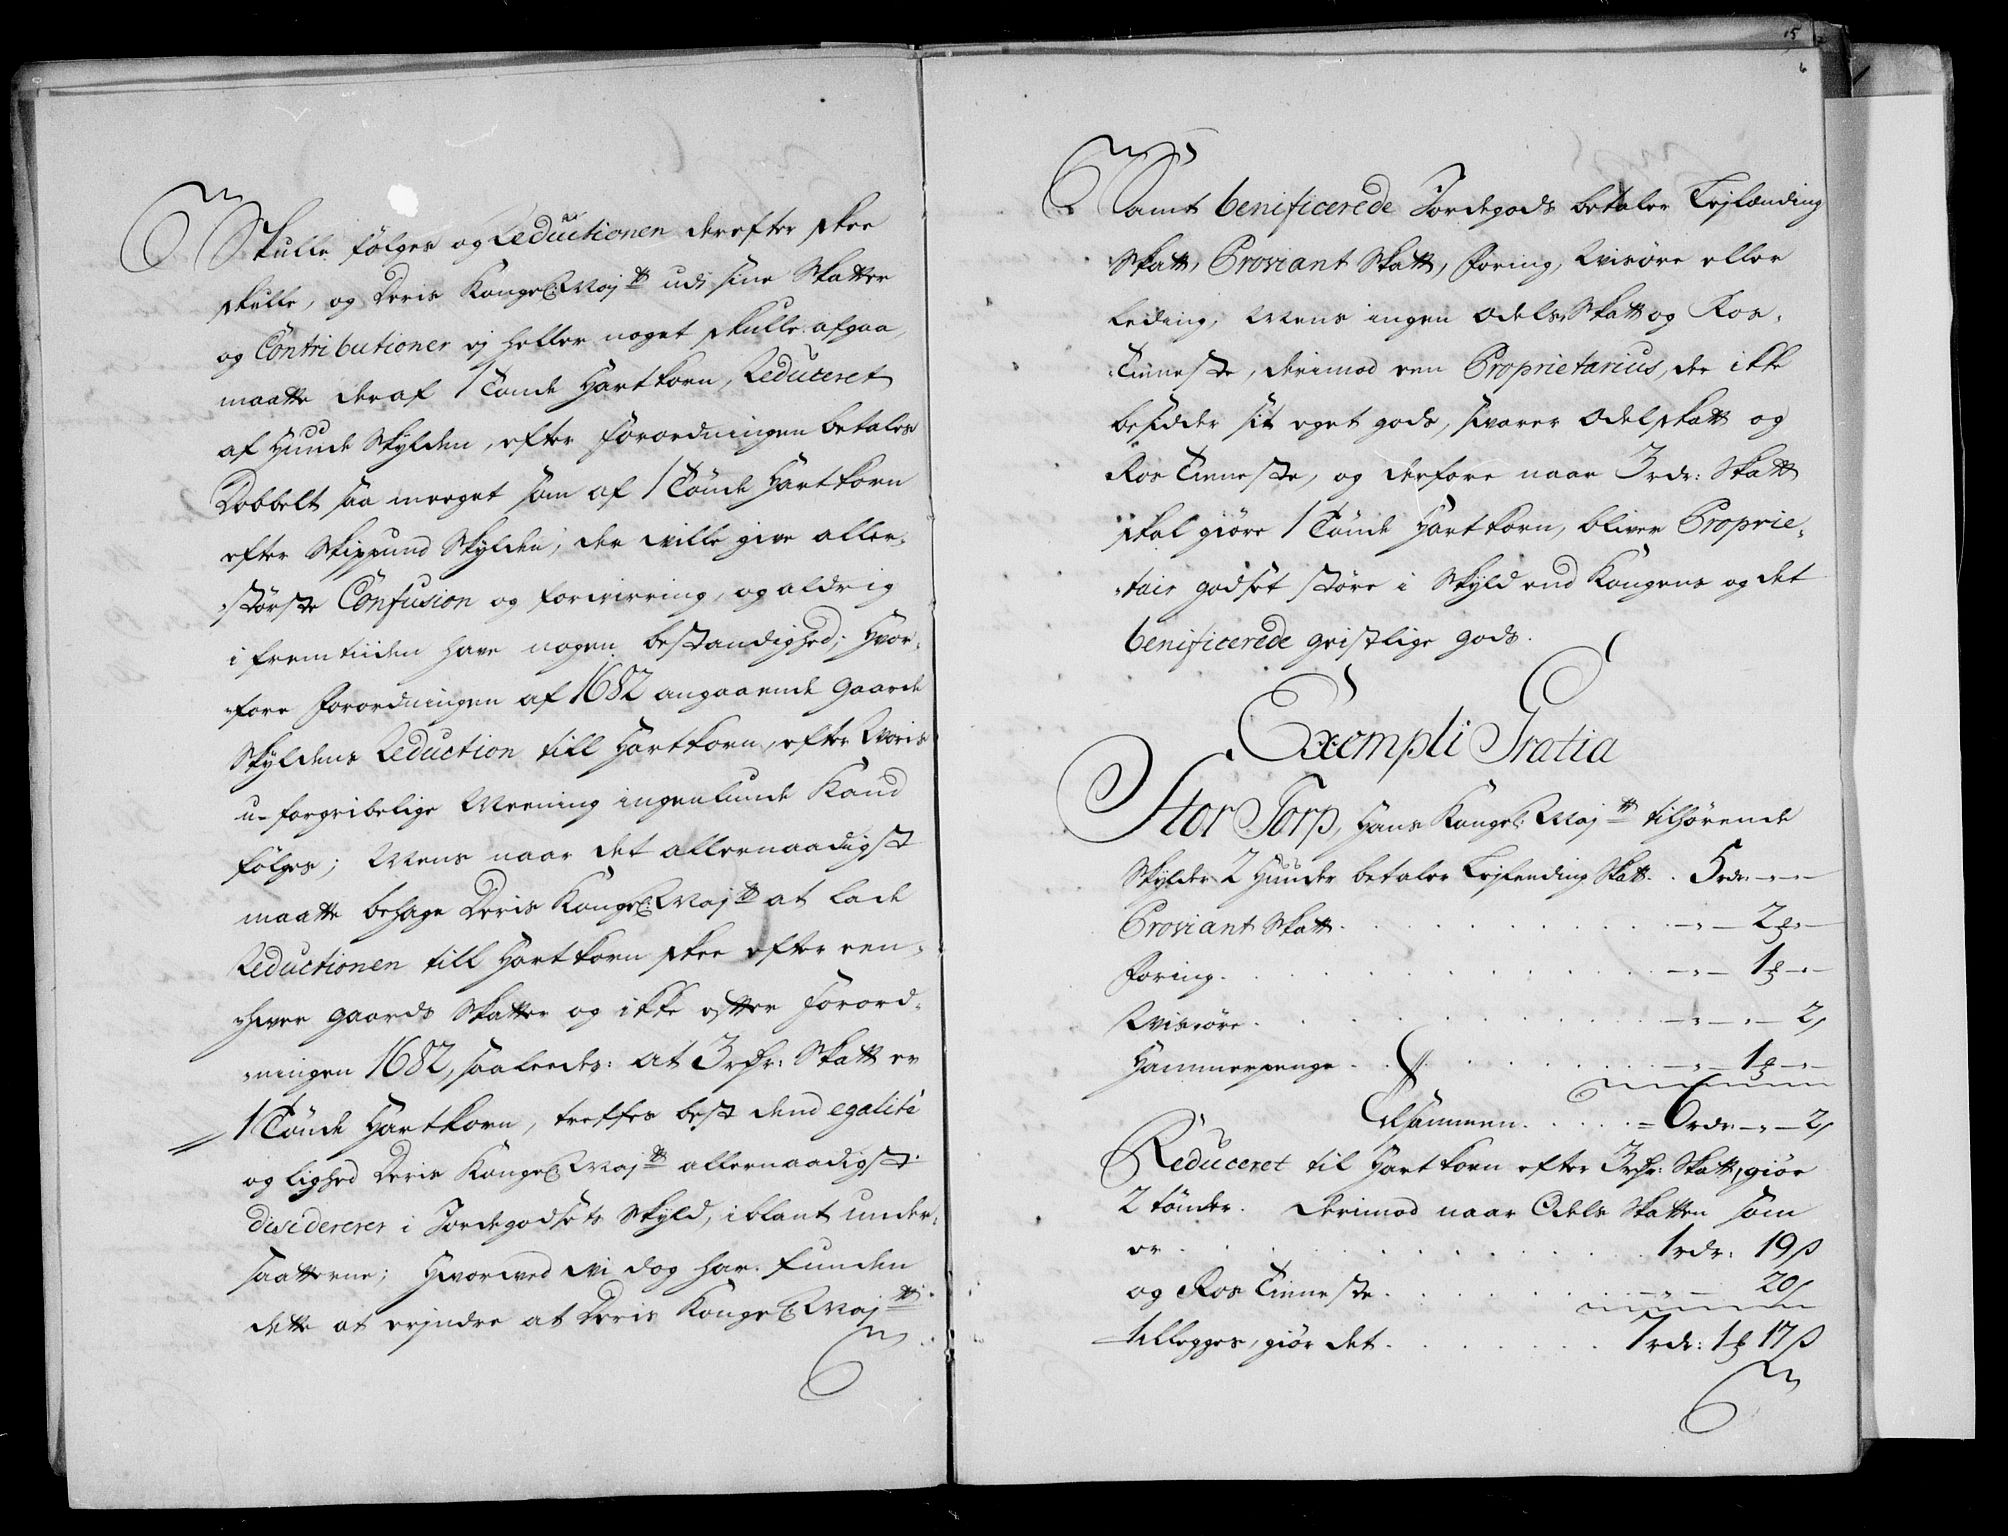 Skulle følges og Reductionen derefter skee
skulle, og Deris Kongel: Maj:tt udi sine Skatter
og Contributioner ej heller noget skulle afgaa,
maatte deraf 1 Tønde Hartkorn, Reduceret
af Hunde Skylden, efter Forordningen betales
Dobbelt saa meeget som af 1 Tønde Hartkorn
efter Skippund Skylden, der wille give aller-
-største Confusion og forwirring, og aldrig
i fremtiiden have nogen bestandighed; Hvor-
-fore Forordningen af 1682 angaaende Gaarde
Skyldens Reduction till Hartkorn, efter Woris
u-forgribelige Meening ingenlunde Kand
følges; Mens naar det allernaadigst
maatte behage Deris Kongel: Maj:tt at lade
Reductionen till Hartkorn skee efter een-
-hver gaards Skatter og ikke efter Forord-
-ningen 1682, saaleedes: at 3 rdr: Skatt er
1 Tønde Hartkorn, treffes best dend egalité
og lighed Deris Kongel: Maj:tt allernaadigst
disidererer i Jordegodsets Skyld, iblant under-
saatterne; Hvorwed wi dog har funden
dette at erindre at Deris Kongel: Maj:tt
15
Samt benificerede Jordegods betaler Lejlænding
Skatt, Proviant Skatt, Foring, Wisøre eller
Leding, Mens ingen Odels Skatt og Ros-
-Tienneste, derimod een Proprietarius, der ikke
besidder sit eget gods, svarer Odelskatt og
Ros Tienneste, og derfore naar 3 rdr: Skatt
skal giøre 1 Tønde Hartkorn, bliver Proprie-
-tair godset støre i Skyld end Kongens og det
benificerede geistlige gods.
Exempli Gratia
Stor Torp, Hans Kongel: Maj:tt tilhørende
Skylder 2 Hunder betaler Lejlending Skatt . . 5 rdr: - - -
Proviant Skatt . . . . . - - 2 ƺ -
Foring . . . . . - - 1 ƺ -
Wisøre . . . . . - - - 2/
Hammerpenge . . . . . - - 1 ƺ -
Tilsammen . . . . . = 6 rdr: - - 2/
Reduceret til Hartkorn efter 3 rdr: Skatt, giør
2 tønder. Derimod naar Odels Skatten som
er . . . . . 1 rdr: 19 ß
og Ros Tienneste . . . . . 20/
tillegges, giør det . . . . . 7 rdr: 1 ƺ 17 ß